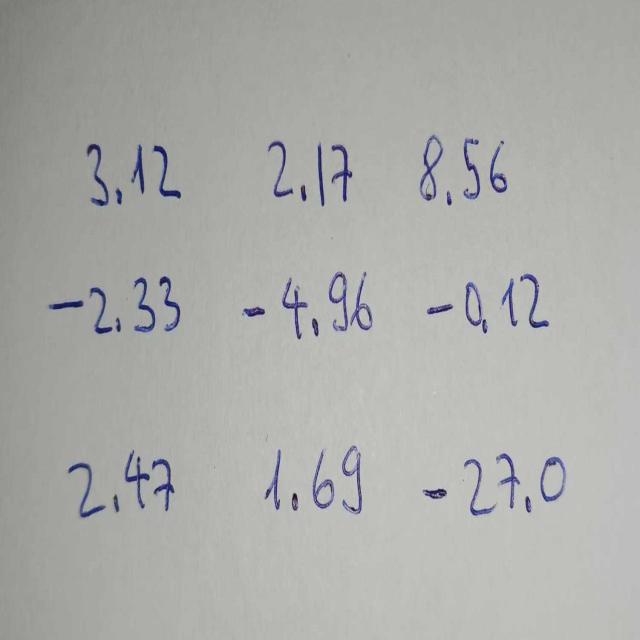 3.12 2.17 8.56
-2.33 -4.96 -0.12
2.47 1.69 -27.0